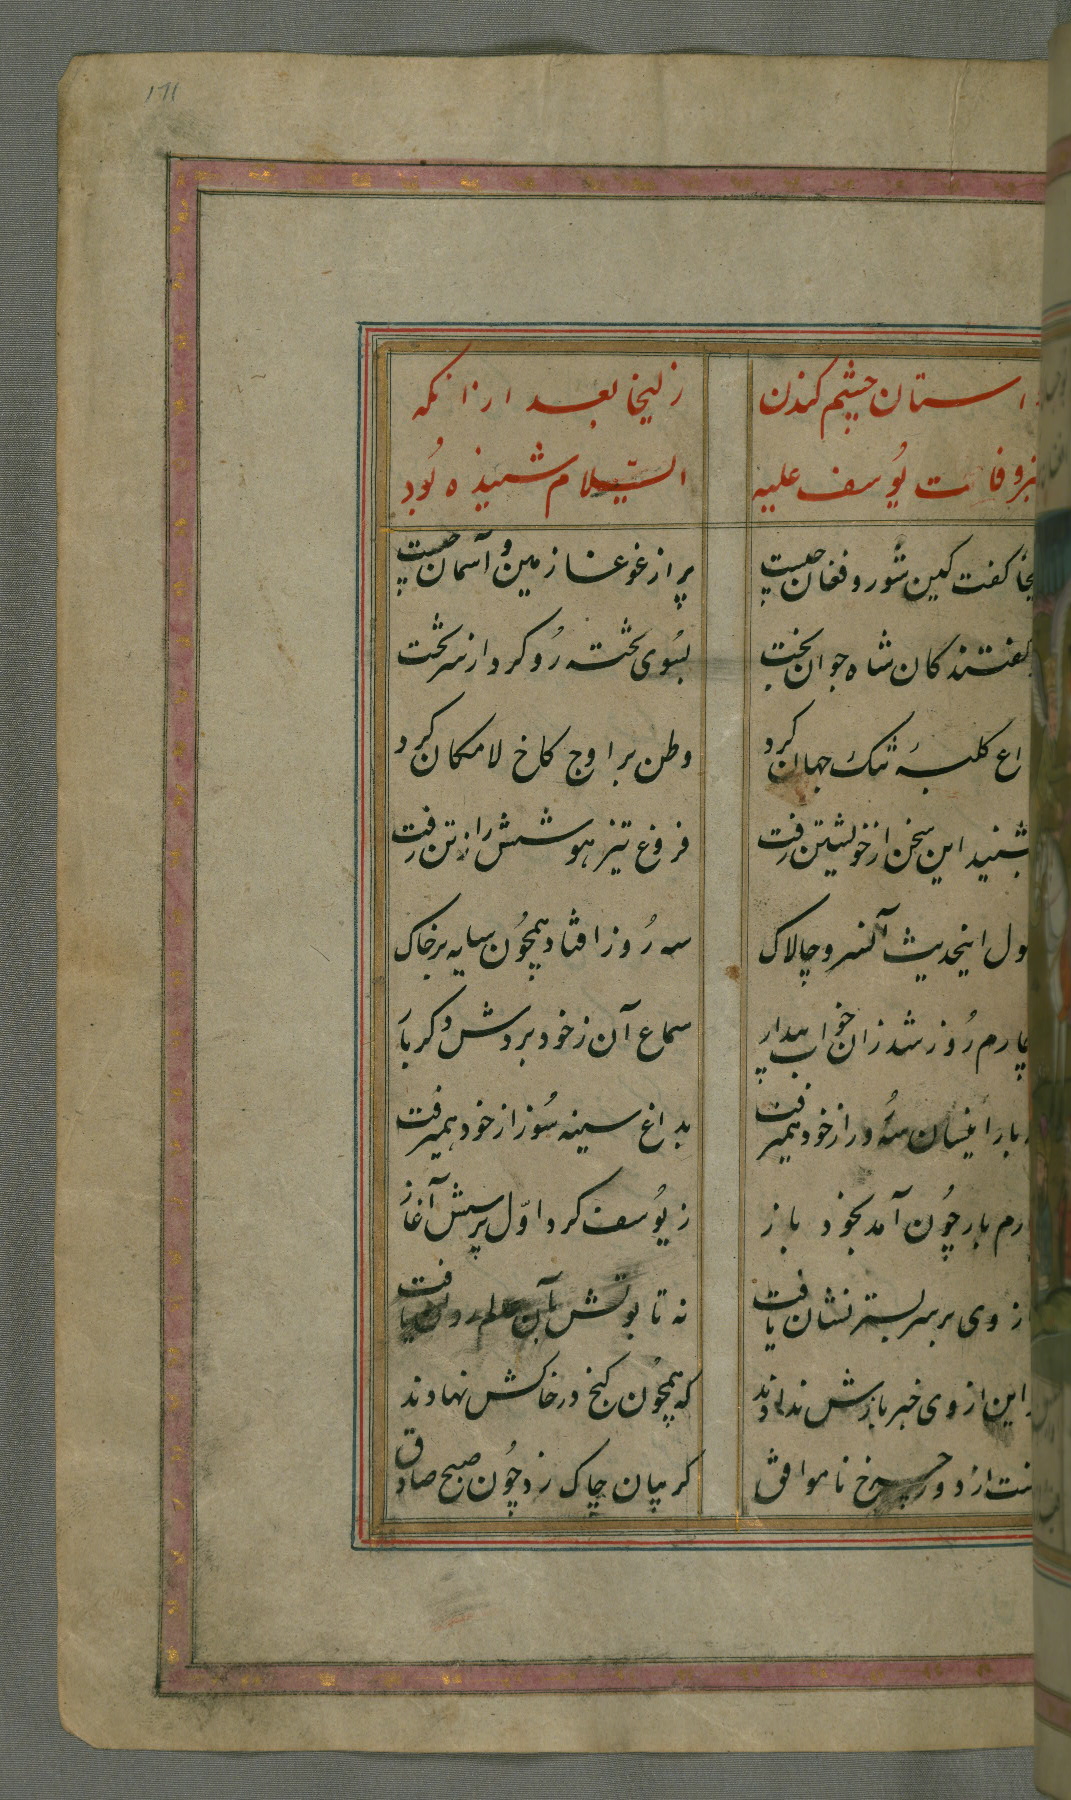 171
استان چشم کندن زلیخا بعد ازانکه
وفات یوسف علیه السّلام شنیده بود
کفت کین شور و فغان چیست پر از غوغا زمین و آسمان چیست
کفتند کان شاه جوان بخت بسوی تخته رو کرد از سر تخت
کلبهٔ تنک جهان کرد وطن بر اوج کاخ لامکان کرد
این سخن از خویشتن رفت فروغ تیز هوشش را ز تن رفت
ول اینحدیث آنسرو چالاک سه روز افتاد همچون سایه بر خاک
رم روز شد زان خواب بیدار سماع آن ز خود بردش دکر بار
بار اینسان سه روز از خود همیرفت بداغ سینه سوز از خود همیرفت
رم بار چون آمد بخود باز ز یوسف کرد اوّل پرسش آغاز
از وی بر سر بستر نشان یافت نه تابوتش بآن یافت
این از وی خبر بازش ندادند که همچون کنج در خاکش نهادند
از دور چرخ ناموافق کریبان چاک زد چون صبح صادق